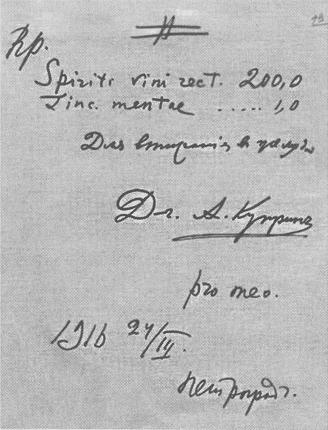 Rp.
Spiriti vini rect. 200,0
Tinc. mentae ..... 1,0
Для втиранія въ
Dr. А. Купринъ
pro meo.
1916 24/III.
Петроградъ.